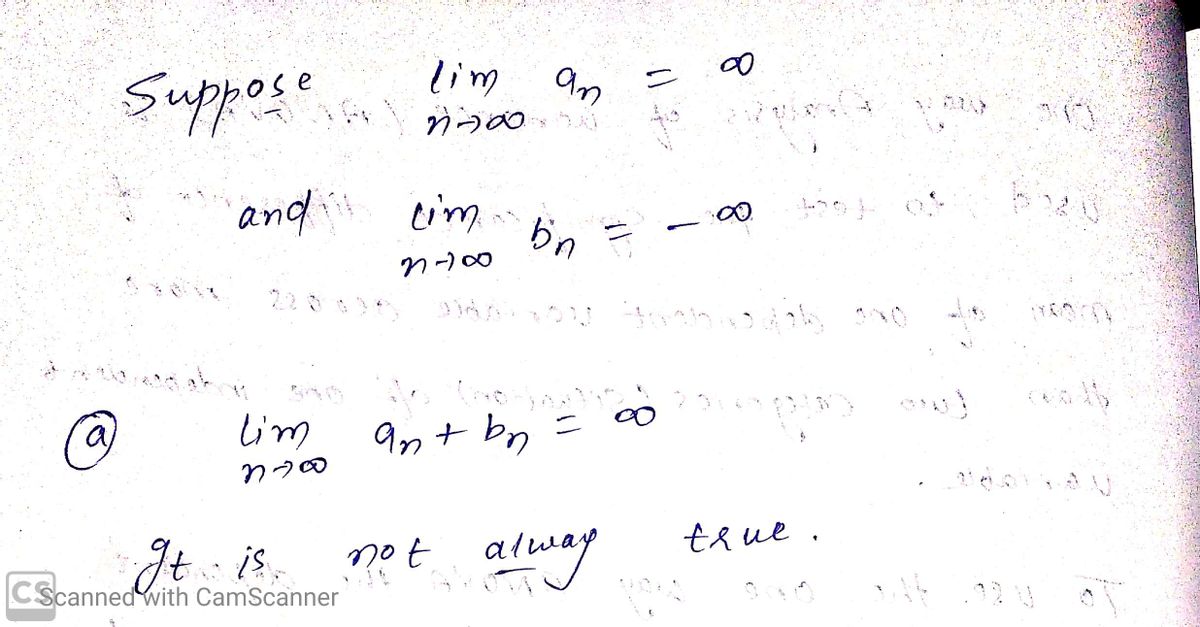 Suppose lim an = ∞
n→∞
and lim bn = - ∞
n→∞
(a) lim an + bn = ∞
n→∞
It is not alway true.
CS Scanned with CamScanner